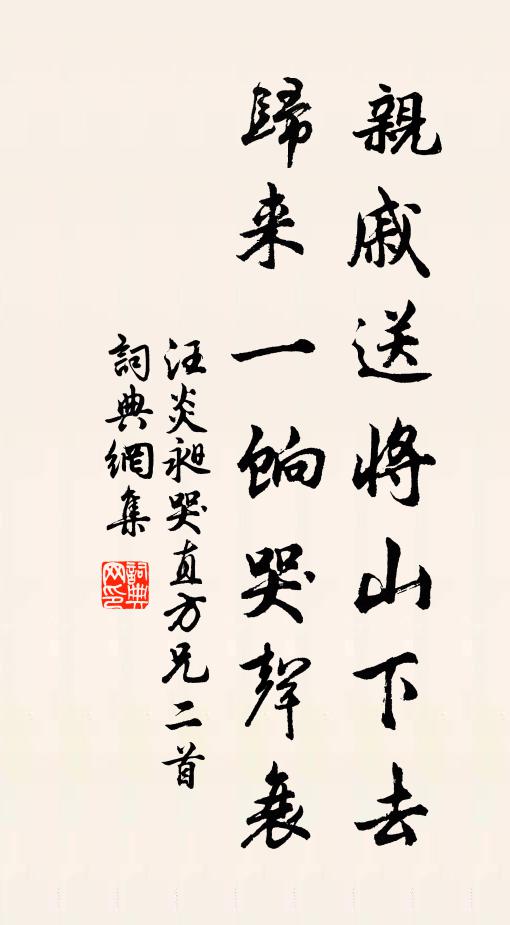 親戚送將山下去
歸来一餉哭聲衰
汪炎昶哭直方兄二首
詞典網集
詞典
网印